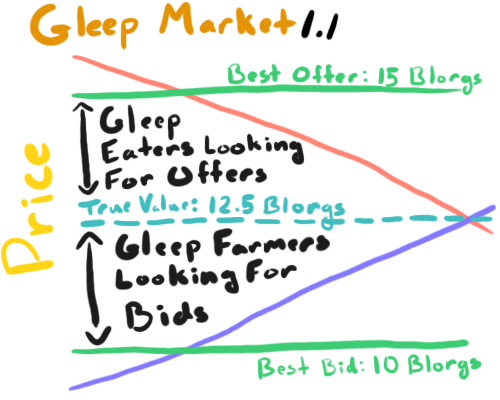 Gleep Market 1.1
Best Offer: 15 Blorgs
Gleep
Eaters Looking
For Offers
True Value: 12.5 Blorgs
Gleep Farmers
Looking For
Bids
Best Bid: 10 Blorgs
Price